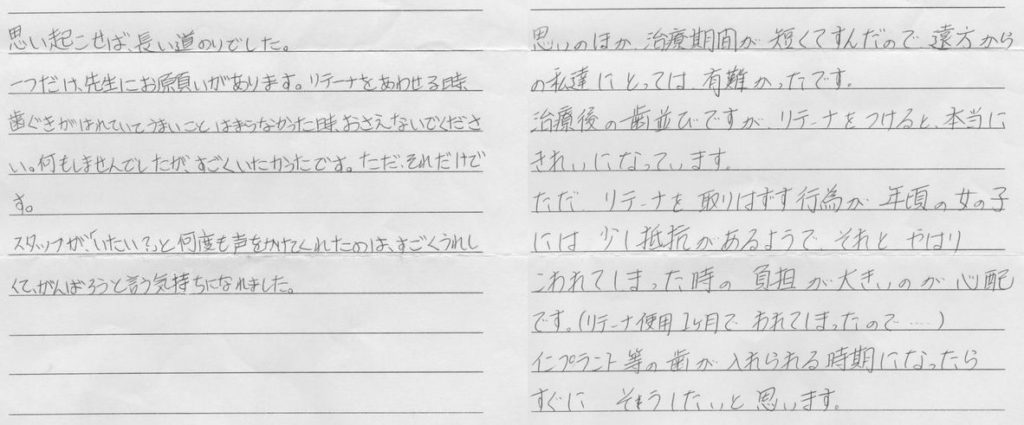 思い起こせば、長い道のりでした。
一つだけ、先生にお願いがあります。リテーナをあわせる時
歯ぐきがはれていてうまいことはまらなかった時、おさえないでくださ
い。何もしませんでしたが、すごくいたかったです。ただ、それだけで
す。
スタッフが、「いたい?」と何度も声をかけてくれたのは、すごくうれし
くて、がんばろうと言う気持ちになれました。
思いのほか、治療期間が短くてすんだので、遠方から
の私達にとっては、有難かったです。
治療後の歯並びですが、リテーナをつけると、本当に
きれいになっています。
ただ、リテーナを取りはずす行為が、年頃の女の子
には少し抵抗があるようで、それと、やはり
こわれてしまった時の負担が大きいのが心配
です。(リテーナ使用1ヶ月でわれてしまったので……)
インプラント等の歯が入れられる時期になったら
すぐに そうしたいと思います。